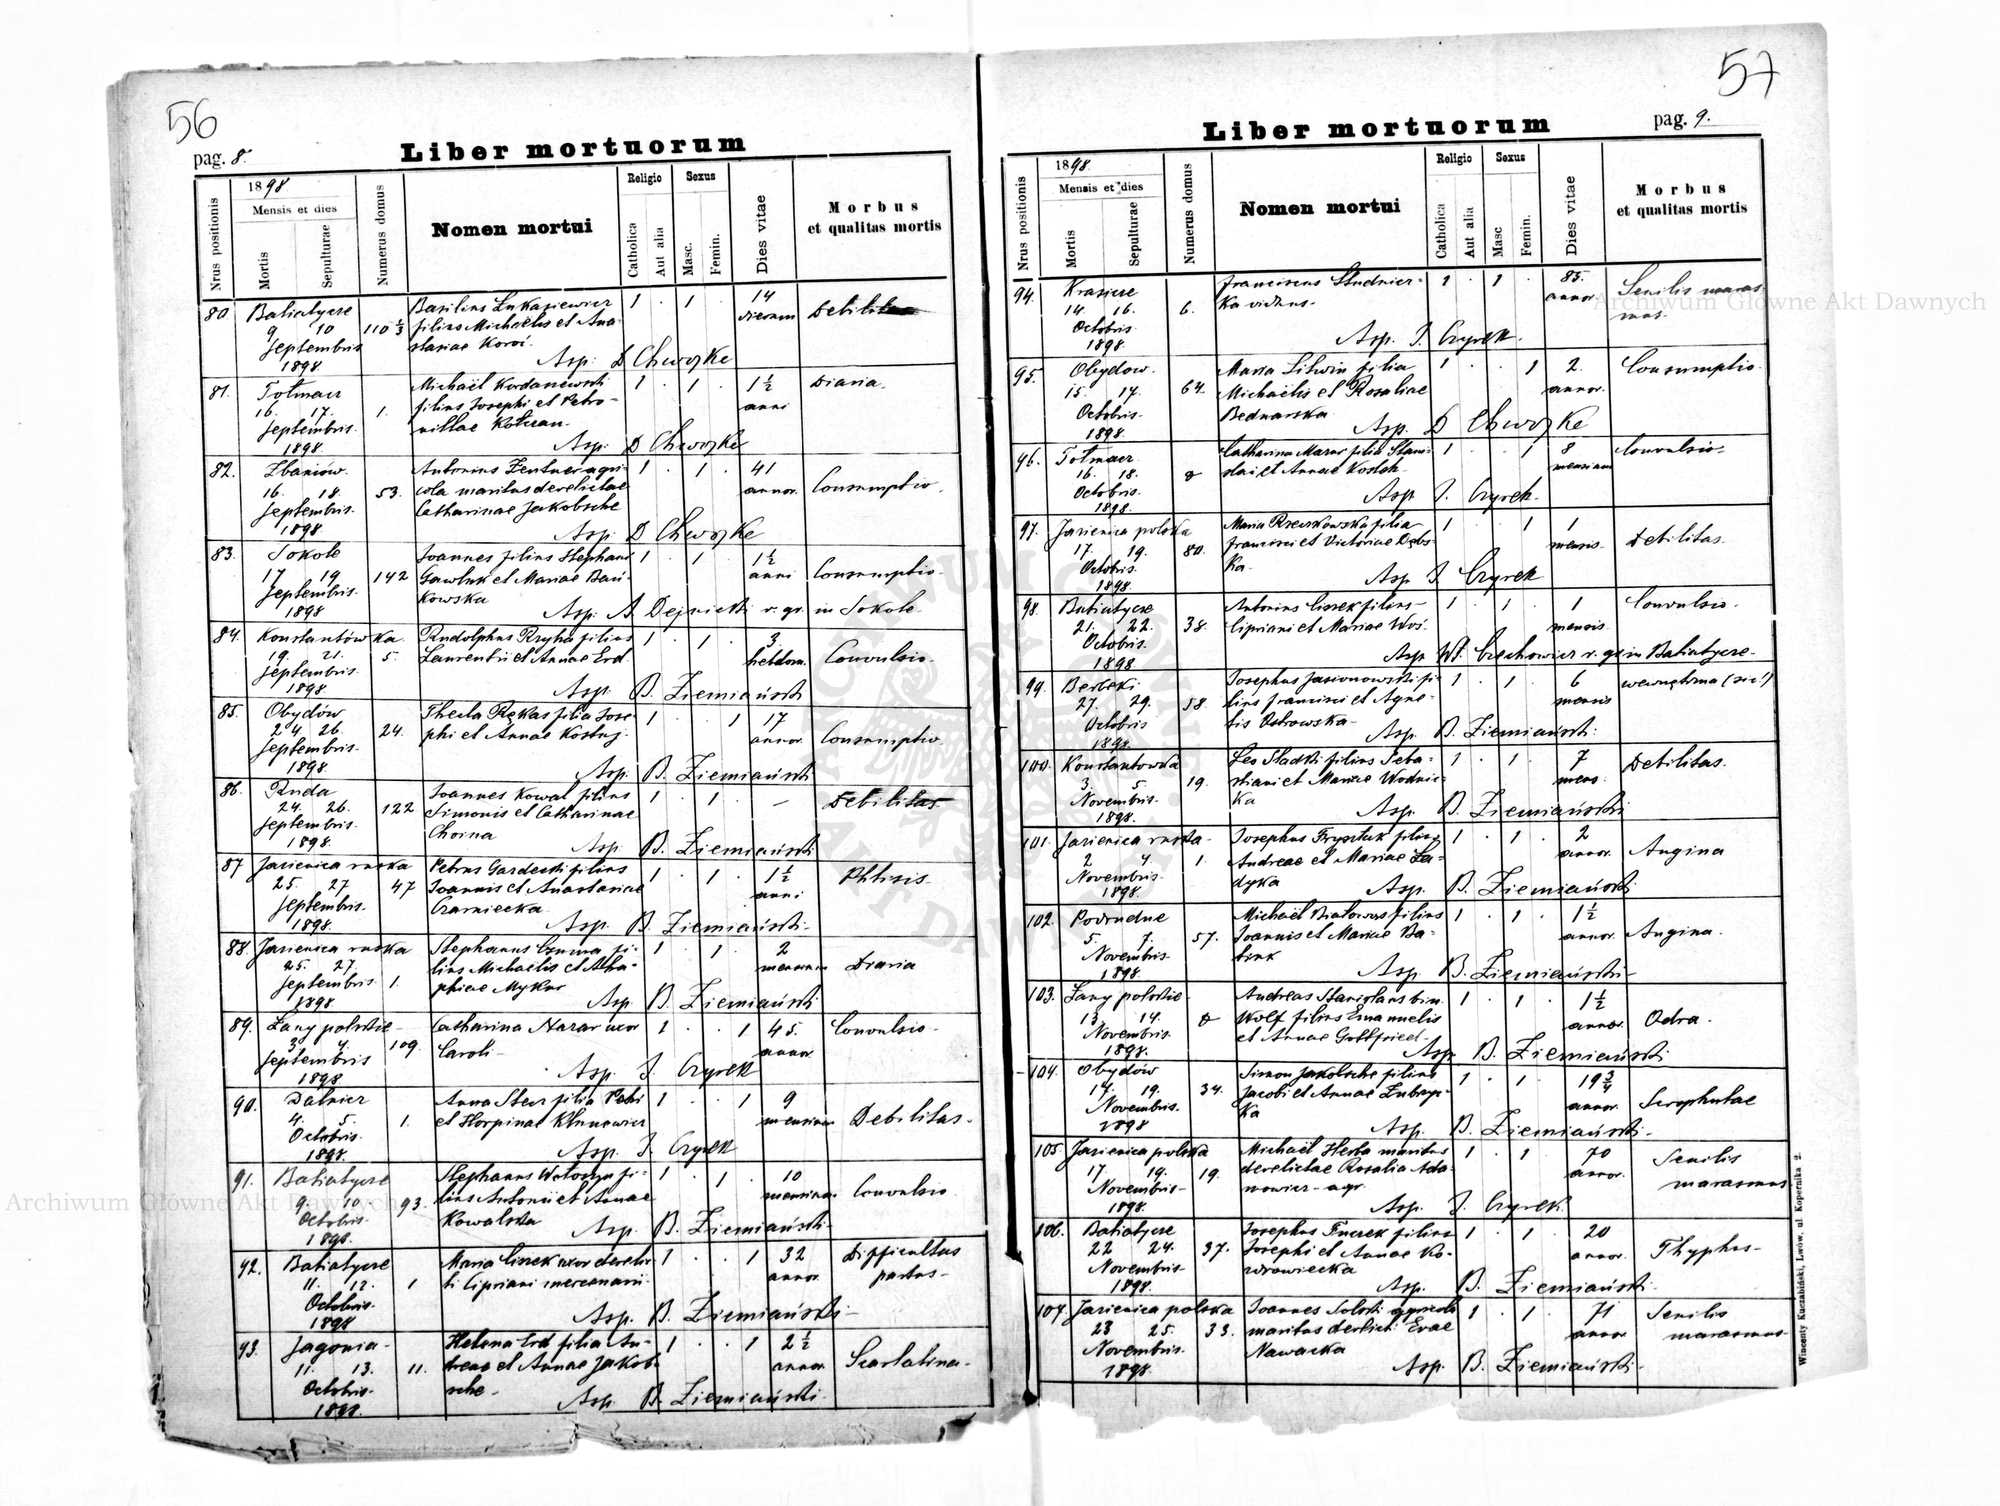 56
pag. 8.
Liber mortuorum
Nrus positionis
1898
Mensis et dies
Mortis
Sepulturae
Numerus domus
Nomen mortui
Religio
Catholica
Aut alia
Sexus
Masc.
Femin.
Dies vitae
Morbus
et qualitas mortis
80. Batiatycze Basilius Łukasiewicz 1 . 1 . 14 Debilitas
9 10 110 1/3 filius Michaëlis et Ana- dierum
Septembris stasiae Koroś.
1898 Asp. D Chwojke
81. Tołmacz Michaël Kordanowski 1 . 1 . 1 1/2 Diaria.
16. 17. 1. filius Josephi et Petro- anni
Septembris. nillae Koteran.
1898. Asp. D Chwojke
82. Zbaniow. Antonius Zentner agri- 1 . 1 . 41 Consumptio.
16. 18. 53. cola maritus derelictae annor.
Septembris. Catharinae Jakobsche
1898 Asp. D Chwojke
83. Sokole Joannes filius Stephani 1 . 1 . 1 1/2 Consumptio.
17 19 142 Gawluk et Mariae Bań- anni
Septembris. kowska
1898 Asp. A Dejnicki v. gr. in Sokole
84. Konstantówka Rudolphus Rzyha filius 1 . 1 . 3. Convulsio.
19. 21. 5. Laurentii et Annae Erd. hebdom.
Septembris
1898. Asp. B. Ziemiański
85. Obydów Thecla Rękas filia Jose- 1 . . 1 17 Consumptio
24 26. 24. phi et Annae Kostuj. annor.
Septembris.
1898. Asp. B. Ziemiański
86. Ruda Joannes Kowal filius 1 . 1 . — Debilitas
24. 26. 122 Simonis et Catharinae
Septembris. Choina
1898. Asp. B. Ziemiański
87 Jazienica ruska Petrus Gardecki filius 1 . 1 . 1 1/2 Phtisis.
25. 27 47 Joannis et Anastasiae anni
Septembris. Czarniecka.
1898. Asp. B. Ziemiański.
88. Jazienica ruska Stephanus Czuma fi- 1 . 1 . 2 Diaria
25. 27. lius Michaëlis et Aha- mensium
Septembris 1. phiae Mykur
1898 Asp. B. Ziemiański
89. Łany polskie Catharina Nazar uxor 1 . . 1 45. Convulsio.
3 4. 109. Caroli annor.
Septembris
1898 Asp. J. Czyrek
90. Dalnicz Anna Stecz filia Petri 1 . . 1 9 Debilitas.
4. 5. 1. et Horpinae Klymowicz mensium
Octobris.
1898. Asp. J. Czyrek
91. Batiatycze Stephanus Wołoszyn fi- 1 . 1 . 10 Convulsio
9. 10. 93. lius Antonii et Annae mensium
Octobris. Kowalska
1898. Asp. B. Ziemiański.
92. Batiatycze Maria Ciszek uxor derelic- 1 . . 1 32 Difficultas
11. 12. 1 ti Cipriani mercenarii annor. partus
Octobris.
1898 Asp. B. Ziemiański
93. Jagonia Helena Erd filia An- 1 . . 1 2 1/2 Scarlatina.
11. 13. 11. dreae et Annae Jakob- annor.
Octobris. sche
1898. Asp. B. Ziemiański.
57
Liber mortuorum
pag. 9.
Nrus positionis
1898.
Mensis et dies
Mortis
Sepulturae
Numerus domus
Nomen mortui
Religio
Catholica
Aut alia
Sexus
Masc
Femin.
Dies vitae
Morbus
et qualitas mortis
94. Krasicze Franciscus Studnicz- 1 . 1 . 85. Senilis maras-
14. 16. 6. ka viduus. annor. mus.
Octobris.
1898. Asp. J. Czyrek.
95. Obydow. Maria Litwin filia 1 . . 1 2. Consumptio.
15. 17. 64. Michaëlis et Rosaliae annor.
Octobris. Bednarska
1898. Asp. D Chwojke
96. Tołmacz Catharina Mazur filia Stani- 1 . . 1 8 Convulsio
16. 18. 8 slai et Annae Koslak mensium
Octobris.
1898. Asp. J. Czyrek.
97. Jazienica polska Maria Rzeszkowska filia 1 . . 1 1 Debilitas.
17. 19. 80. Francisci et Victoriae Dębs- mensis.
Octobris. ka.
1898. Asp J. Czyrek
98. Batiatycze Antonius Ciszek filius 1 . 1 . 1 Convulsio.
21. 22. 38. Cipriani et Mariae Woś. mensis.
Octobris.
1898 Asp. Wł. Czechowicz v. gr. in Batiatycze
99. Berbeki Josephus Jasionowski fi- 1 . 1 . 6 wewnętrzna (sic!)
27. 29. 58. lius Francisci et Agne- mensis
Octobris tis Ostrowska.
1898. Asp. B. Ziemiański.
100. Konstantówka Leo Sladki filius Seba- 1 . 1 . 7 Debilitas.
3. 5. 19. stiani et Mariae Wodnic- mens.
Novembris. ka
1898. Asp. B. Ziemiański
101. Jazienica ruska Josephus Frysztuk filius 1 . 1 . 2 Angina
2 4. 1. Andreae et Mariae Ła- annor.
Novembris. dyka
1898. Asp. B. Ziemiański
102. Podrudne Michaël Białowąs filius 1 . 1 . 1 1/2 Angina.
5. 7. 57. Joannis et Mariae Ba- annor.
Novembris. biuk
1898. Asp. B. Ziemiański
103. Łany polskie Andreas Stanislaus bin. 1 . 1 . 1 1/2 Odra.
13. 14. 8 Wolf filius Emanuelis annor.
Novembris. et Annae Gottfried
1898. Asp. B. Ziemiański
104. Obydów Simon Jakobsche filius 1 . 1 . 19 3/4 Scrophulae
17. 19. 34. Jacobi et Annae Zubrzyc- annor.
Novembris. ka
1898 Asp. B. Ziemiański.
105 Jazienica polska Michaël Herba maritus 1 . 1 . 70 Senilis
17. 19. 19. derelictae Rosalia Ada- annor. marasmus
Novembris nowicz agr.
1898. Asp. J. Czyrek
106. Batiatycze Josephus Fuczek filius 1 . 1 . 20 Thyphus
22 24. 37. Josephi et Annae Ko- annor.
Novembris wrowiecka
1898. Asp. B. Ziemiański.
107. Jazienica polska Joannes Solski agricola 1 . 1 . 71 Senilis
23 25. 33. maritus derelict. Evae annor. marasmus
Novembris Nawacka
1898. Asp. B. Ziemiański.
Wincenty Kuczabiński, Lwów, ul. Kopernika 2.
Archiwum Główne Akt Dawnych
Archiwum Główne Akt Dawnych